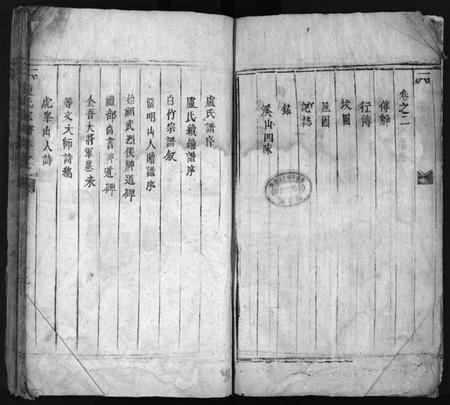 卷之二
傳解
行傳
坟圖
邑圖
記誌
銘
溪山四咏
盧氏譜序
盧氏續修譜序
白竹宗譜敘
明山人贈譜序
始祖武烈侯神道碑
禮部尚書神道碑
金吾大將軍墓表
等文大師詩稿
虎峯山人詩